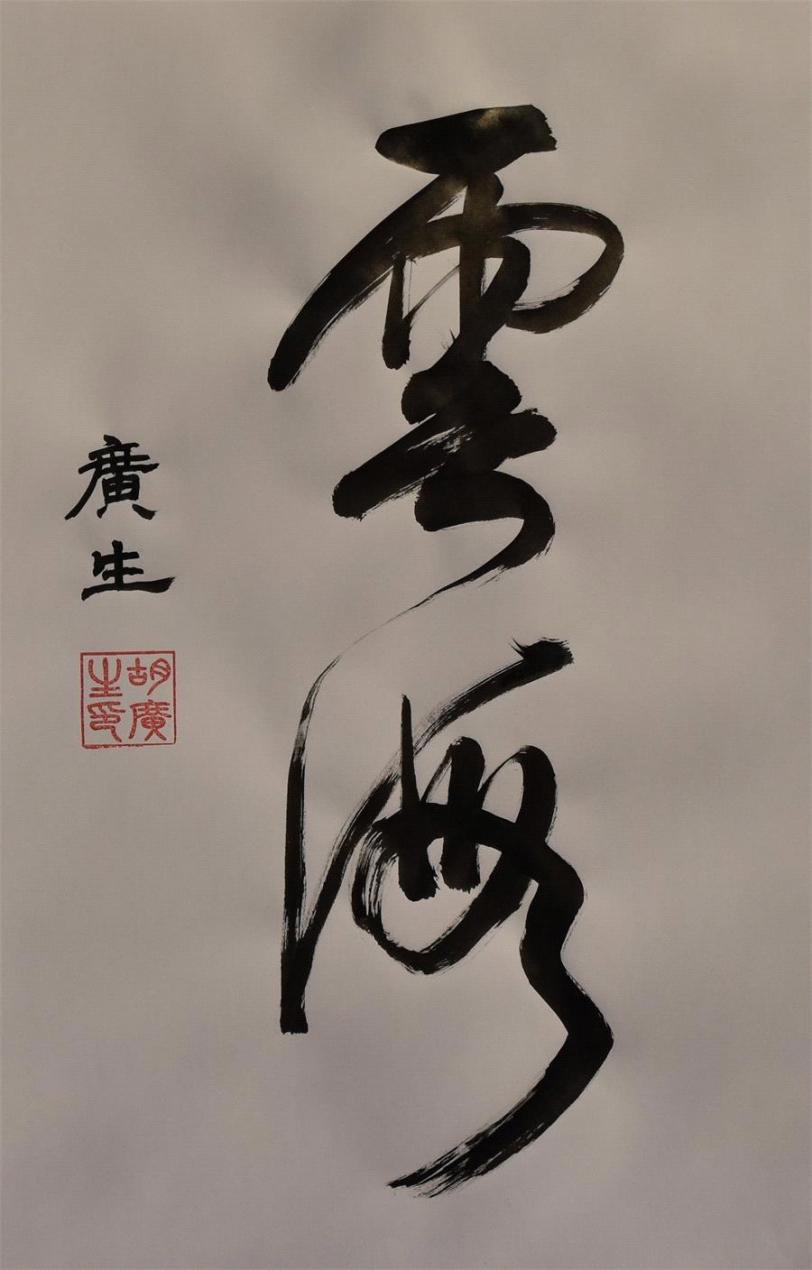 雲海
廣生
胡廣
生印